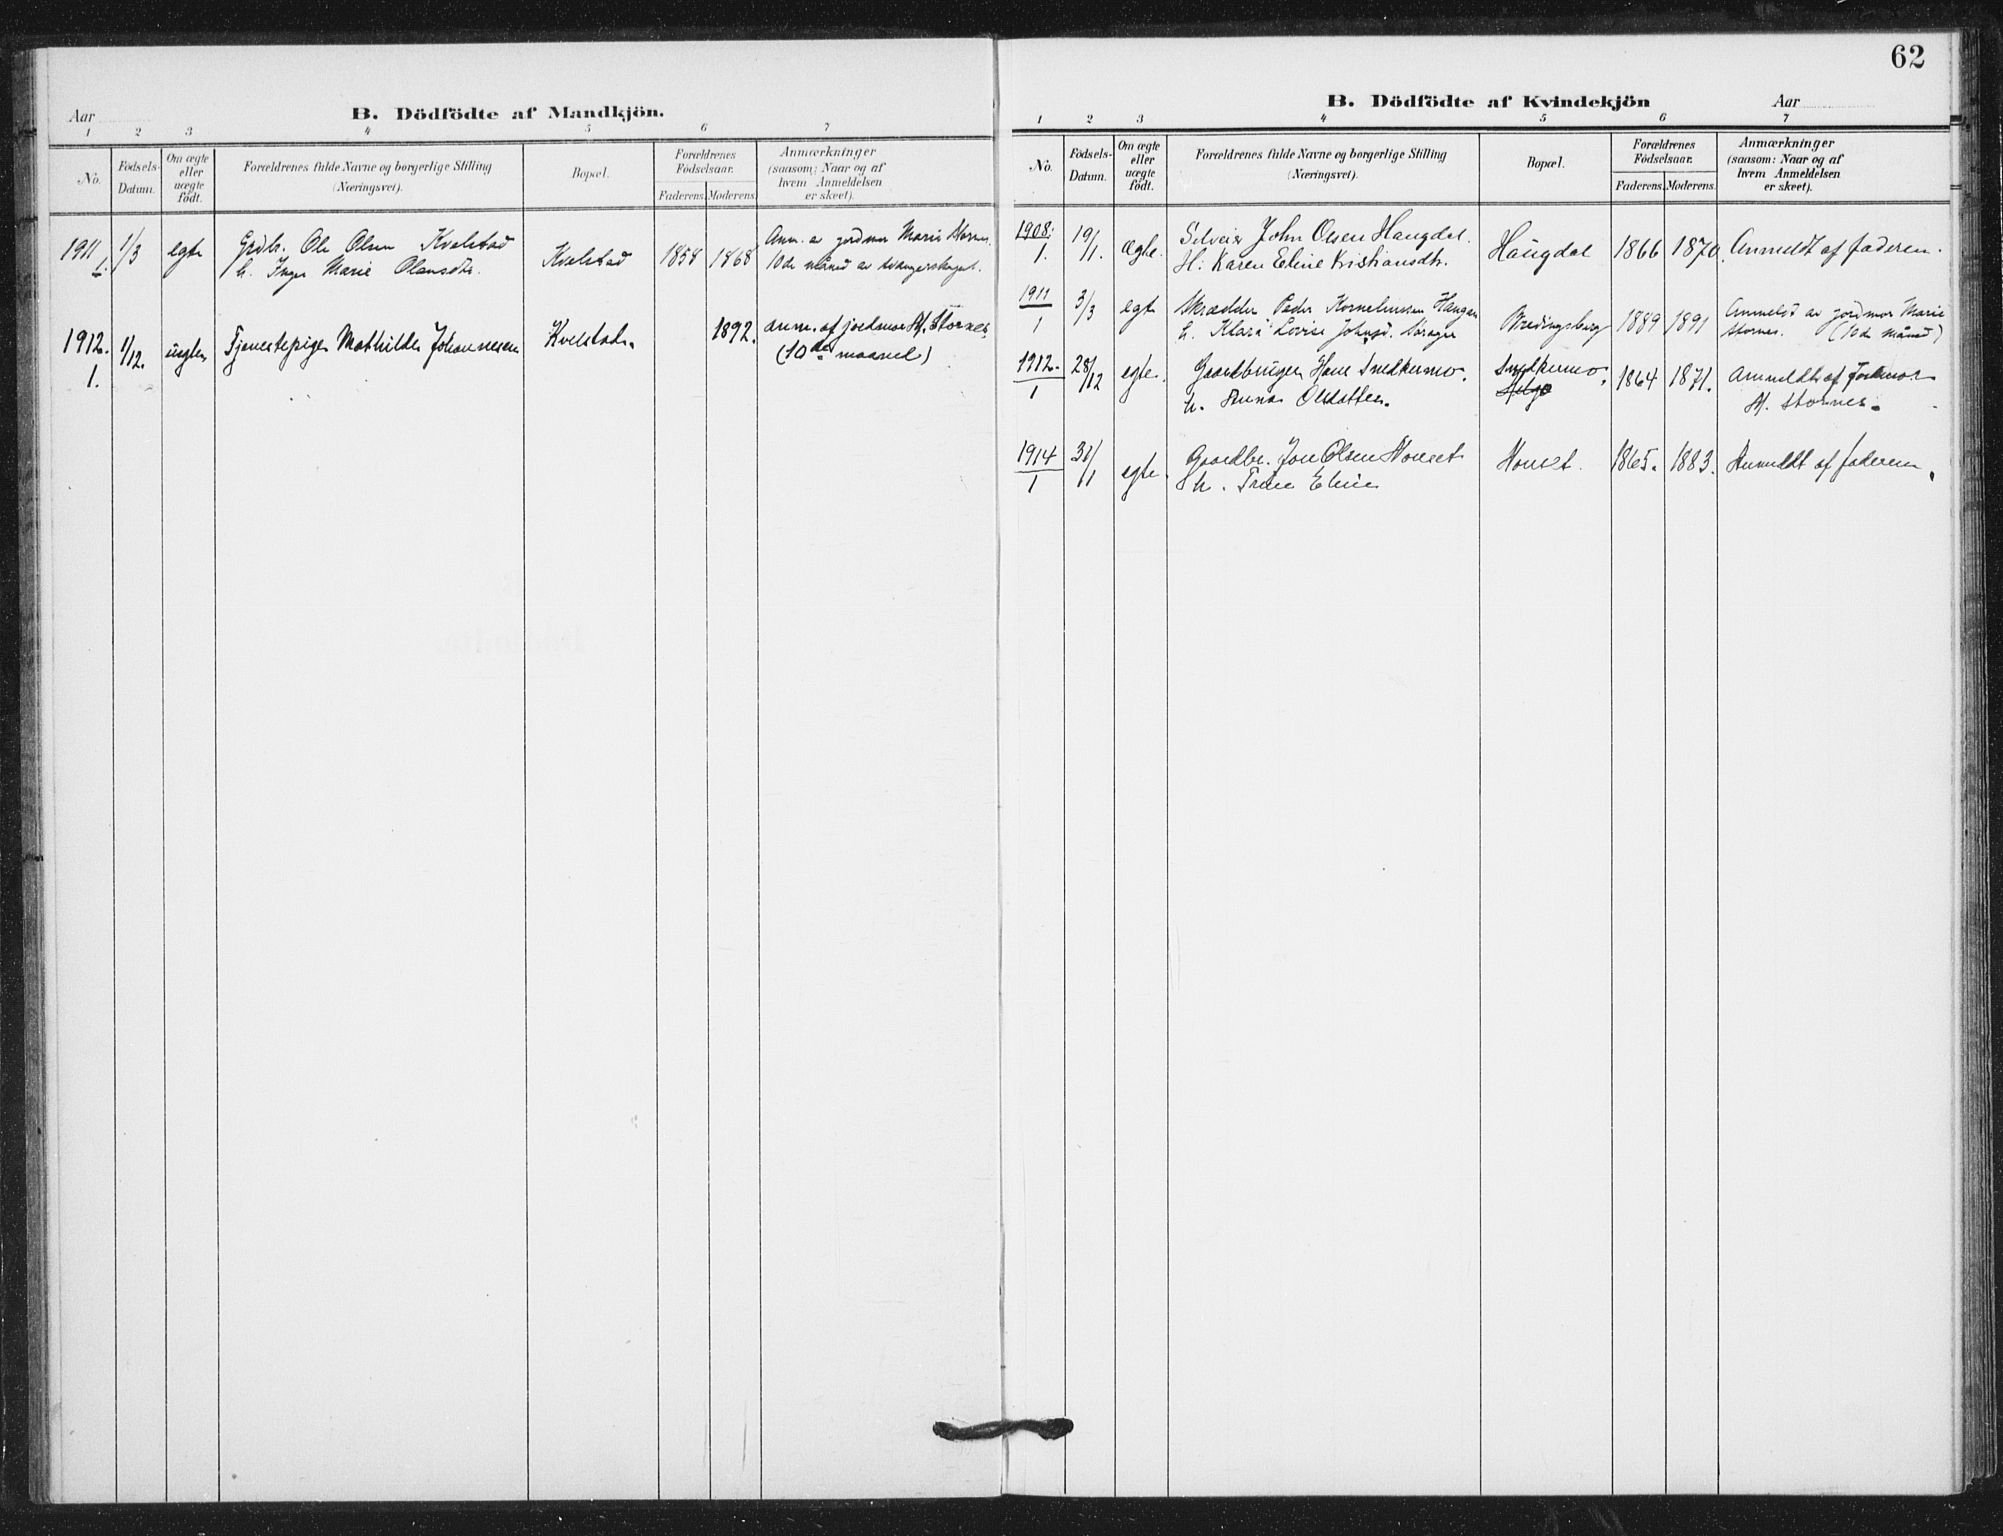 62
B. Dödfödte af Mandkjön.
Aar
1 2 3 4 5 6 7
No. Födsels-Datum. Om ægte eller uægte födt. Forældrenes fulde Navne og borgerlige Stilling (Næringsvei). Bopæl. Forældrenes Födselsaar. Faderens. Moderens. Anmærkninger (saasom: Naar og af hvem Anmeldelsen er skeet).
1911 1/3 egte Grdbr. Ole Olsen Kvelstad Kvelstad 1858 1868 Anm. av jordmor Marie Stornes.
1. h. Inger Marie Olausdtr. 10de måned av svangerskapet.
1912. 1/12. uegte Tjenestepige Mathilde Johannesen Kvelstad. 1892. anm. af jordmor M. Stornes
1. (10de maaned)
B. Dödfödte af Kvindekjön
Aar
1 2 3 4 5 6 7
No. Födsels-Datum. Om ægte eller uægte födt. Forældrenes fulde Navne og borgerlige Stilling (Næringsvei). Bopæl. Forældrenes Födselsaar. Faderens. Moderens. Anmærkninger (saasom: Naar og af hvem Anmeldelsen er skeet).
1908. 19/1. Ægte. Selveier John Olsen Haugdal. Haugdal 1866 1870 Anmeldt af faderen.
1. H: Karen Eline Kristiansdtr.
1911 3/3 egte Skrædder Peder Kornelиussen 1889 1891 Anmeldt av jordmor Marie
1 h. Klara Lovise Stornes. (10de måned)
1912. 28/12 egte. Gaardbruger Hans Snedkermo. Snedkermo. 1864 1871. Anmeldt af Jordmor
1 h. Anna Olsdatter. M. Stornes.
1914 31/1 egte. Gaardbr. Jon Olsen Homset Homset. 1865. 1883. Anmeldt af faderen.
1 h. Trine Eline